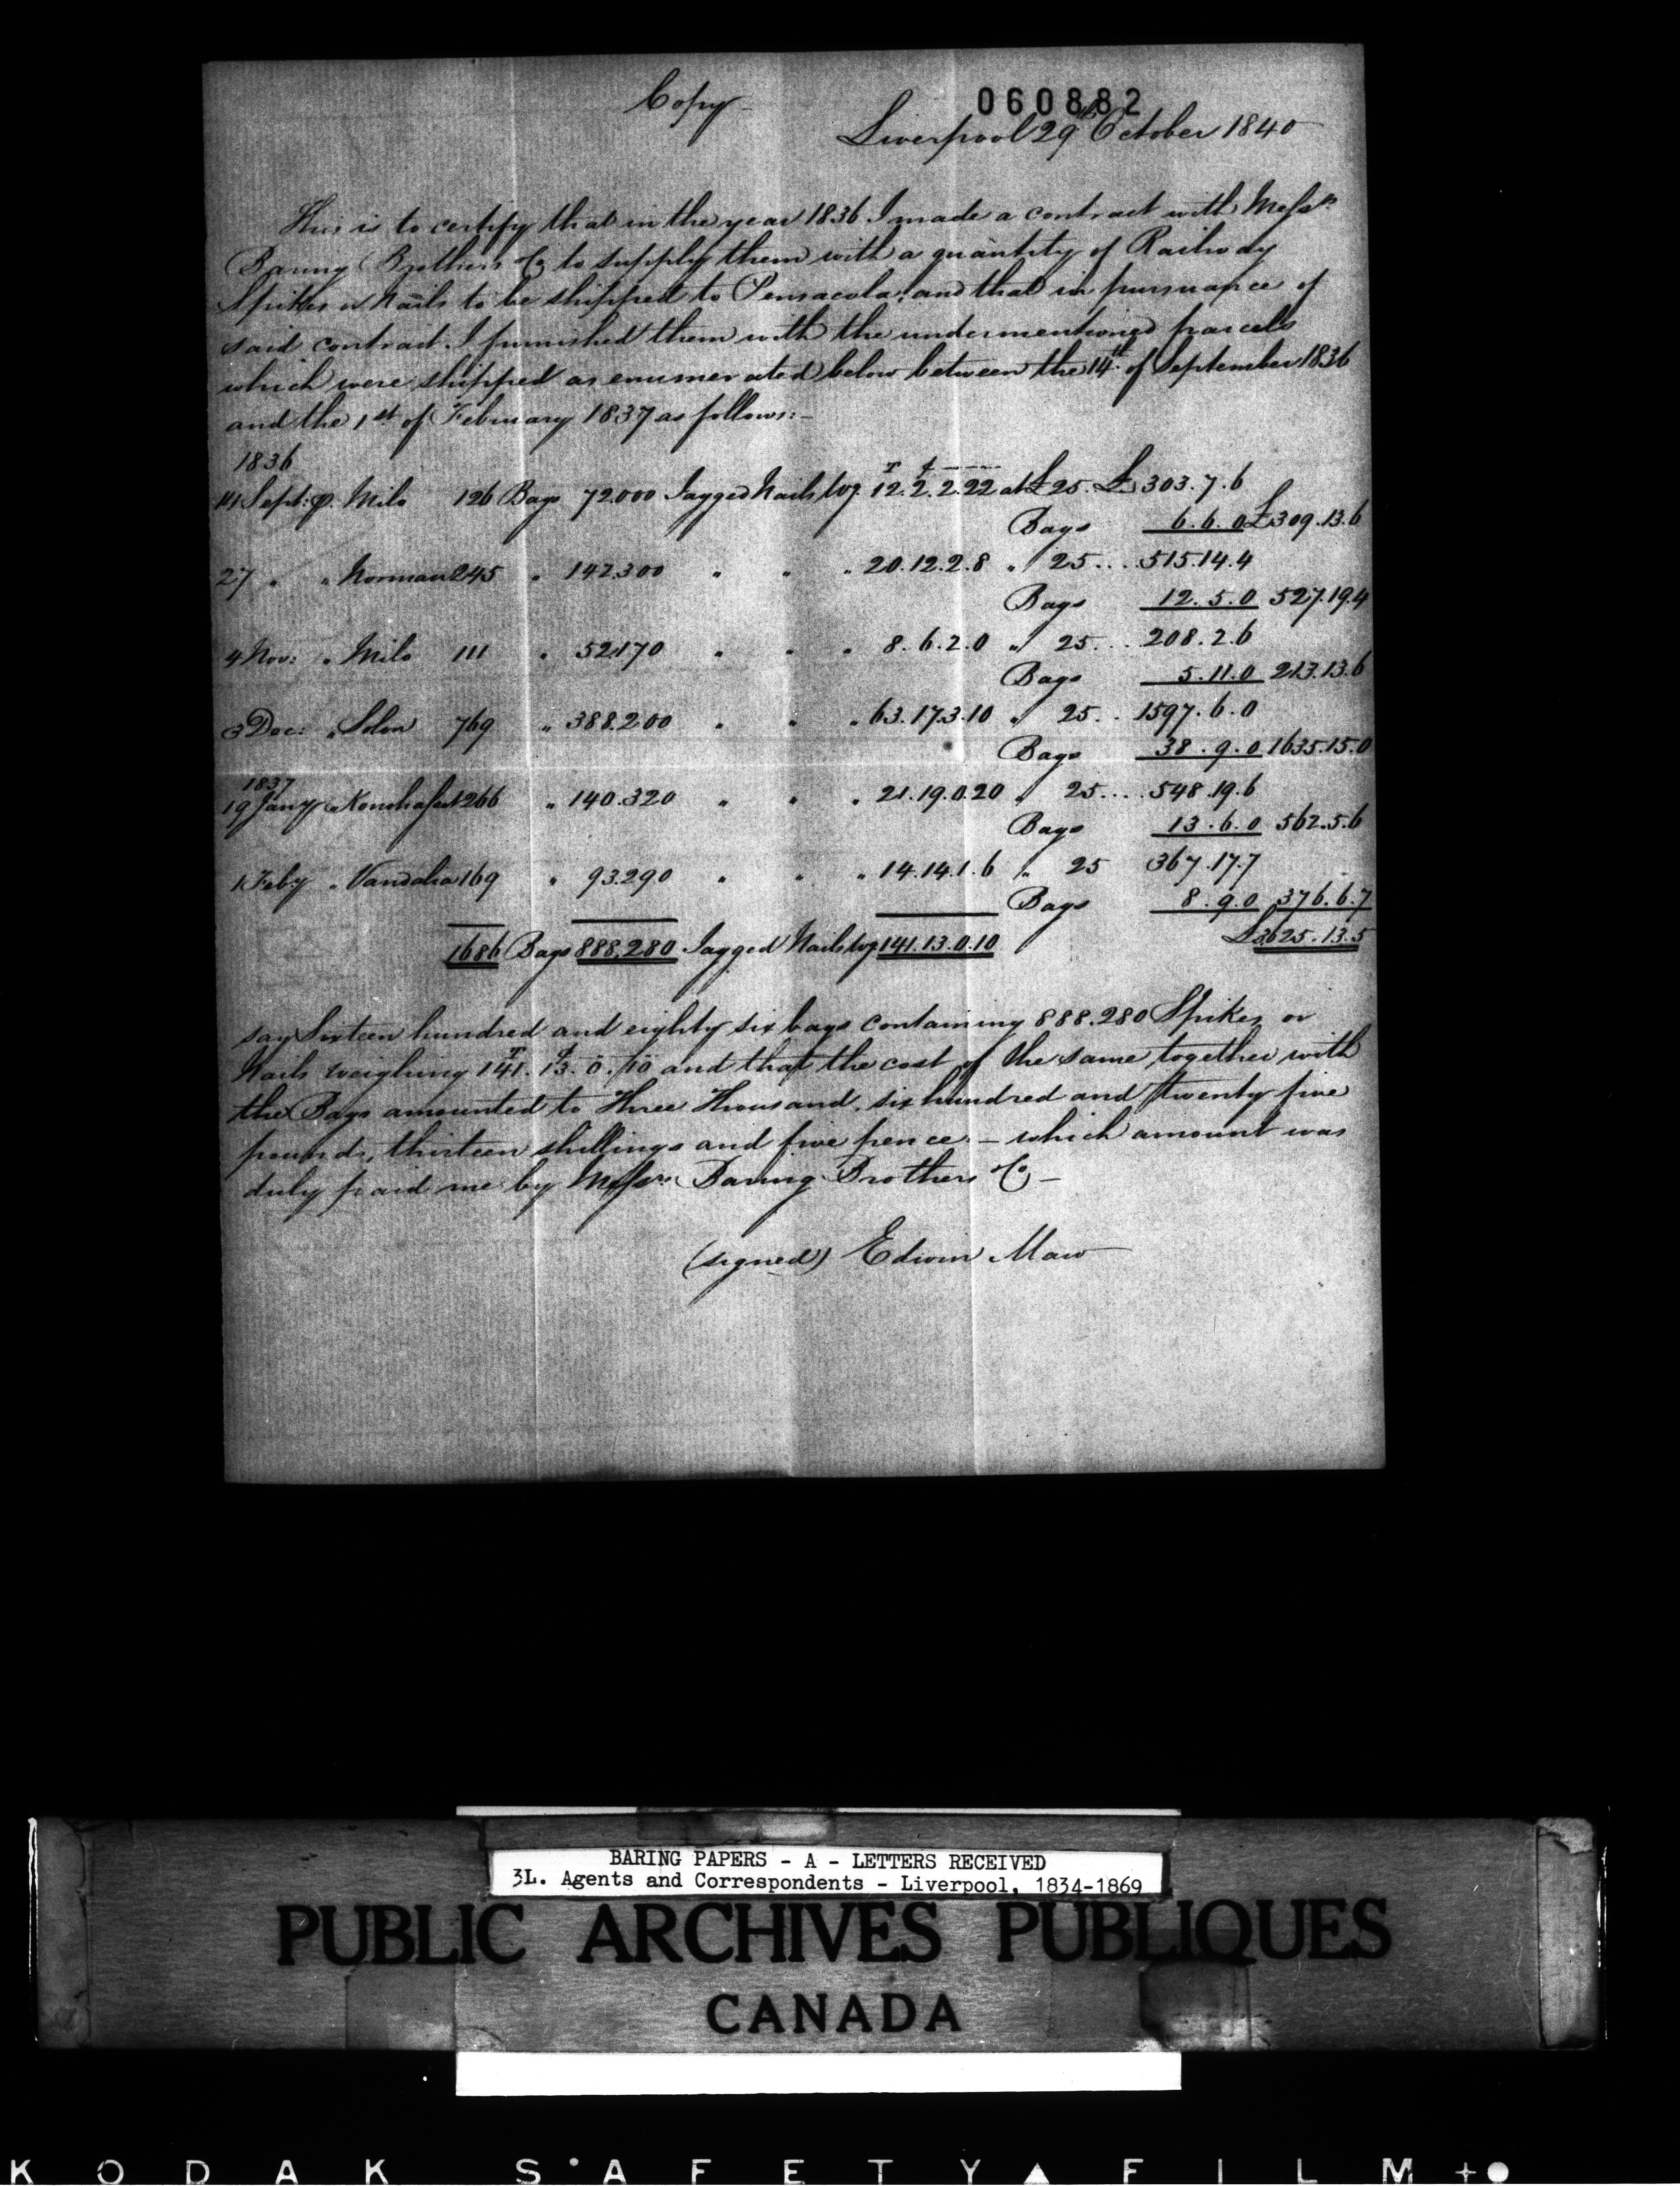 Copy
060882
Liverpool 29th October 1840
This is to certify that in the year 1836 I made a contract with Messrs
Baring Brothers & Co to supply them with a quantity of Railway
Spikes or Nails to be shipped to Pensacola, and that in pursuance of
said contract I furnished them with the undermentioned parcels
which were shipped as enumerated below between the 14th of September 1836
and the 1st of February 1837 as follows:-
1836
14 Sept: p. Milo 126 Bags 72.000 Jagged Nails wg. 12.2.2.22 at £25. £303.7.6
Bags 6.6.0 £309.13.6
27 " " Norman 245 " 142.300 " " " 20.12.2.8 " 25... 515.14.4
Bags 12.5.0 527.19.4
4 Nov: " Milo 111 " 52.170 " " " 8.6.2.0 " 25... 208.2.6
Bags 5.11.0 213.13.6
3 Dec: " Solon 769 " 388.200 " " " 63.17.3.10 " 25.. 1597.6.0
Bags 38.9.0 1635.15.0
1837
19 Jany " 266 " 140.320 " " " 21.19.0.20 " 25.... 548.19.6
Bags 13.6.0 562.5.6
1 Feby " Vandalia 169 " 93.290 " " " 14.14.1.6 " 25 367.17.7
Bags 8.9.0 376.6.7
1686 Bags 888,280 Jagged Nails wg. 141.13.0.10 £3625.13.5
say Sixteen hundred and eighty six bags containing 888.280 Spikes or
Nails weighing 141.13.0.10 and that the cost of the same together with
the Bags amounted to Three Thousand, six hundred and twenty five
pounds, thirteen shillings and five pence - which amount was
duly paid me by Messrs Baring Brothers & Co -
(signed) Edwin Maw
BARING PAPERS - A - LETTERS RECEIVED
3L. Agents and Correspondents - Liverpool, 1834-1869
PUBLIC ARCHIVES PUBLIQUES
CANADA
KODAK SAFETY FILM